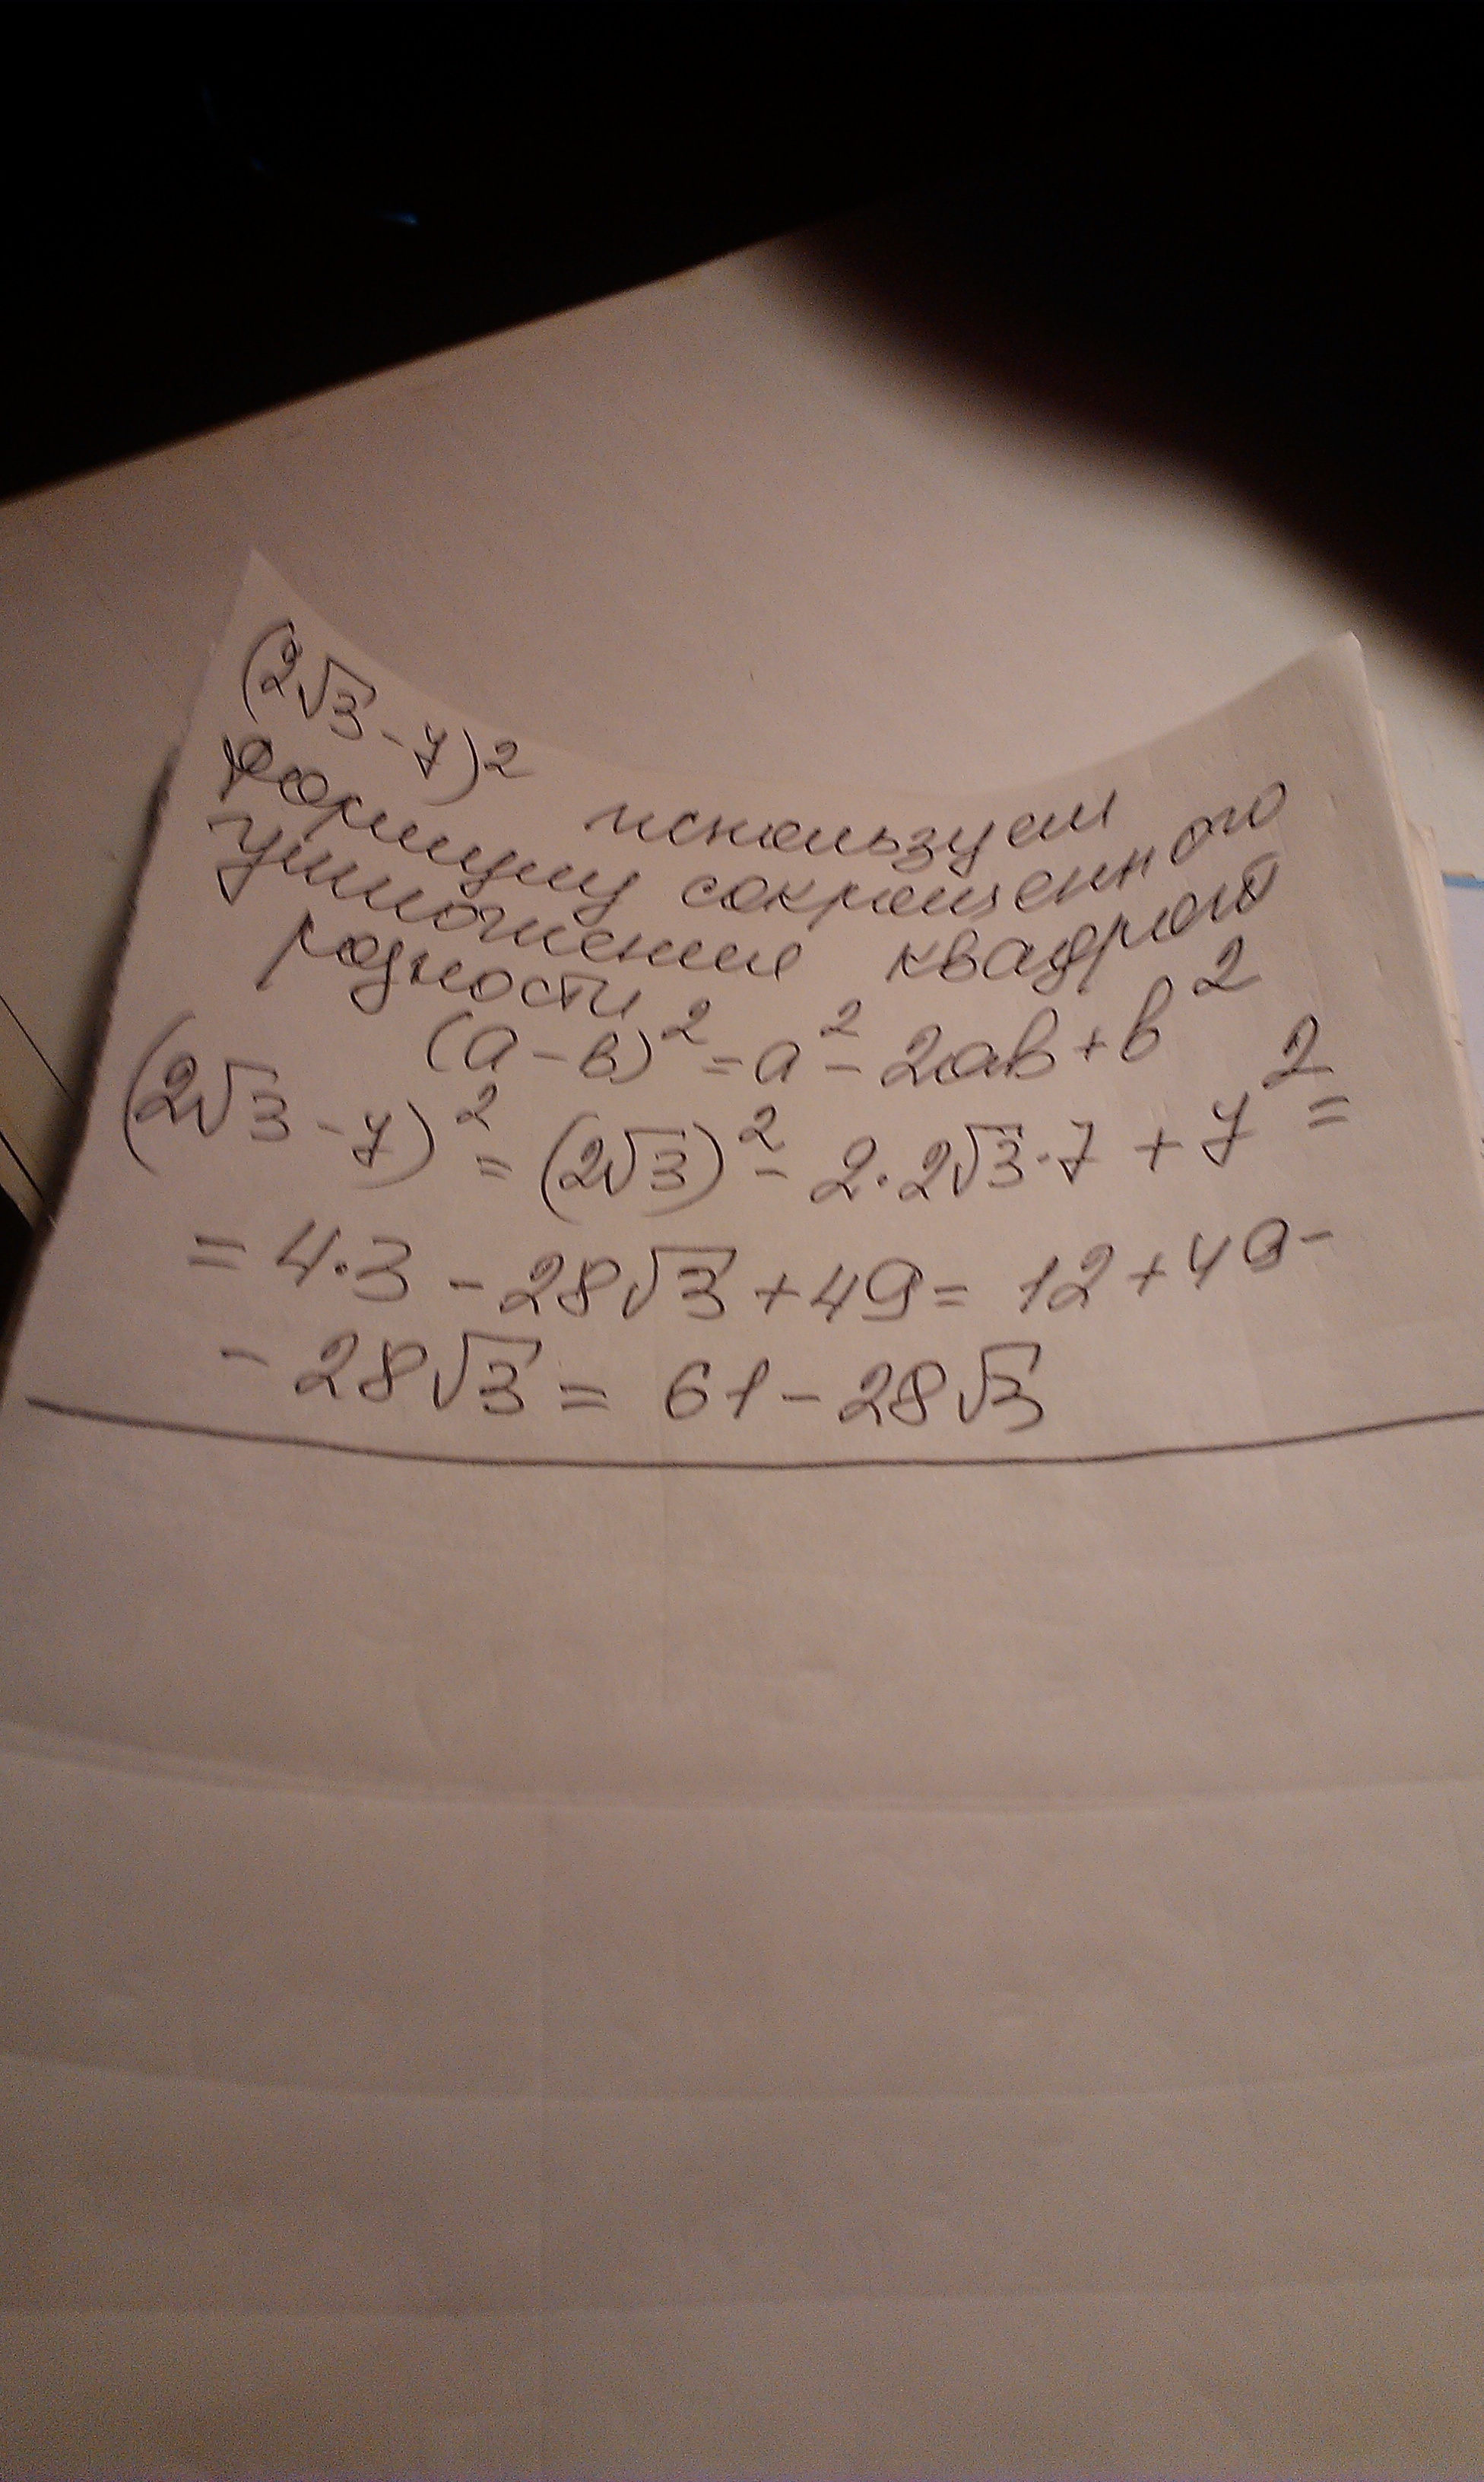 (2√3 - 7)2 используем
формулу сокращенного
умножения квадрат
разности
(a - в)² = a² - 2ав + в²
(2√3 - 7)² = (2√3)² - 2·2√3·7 + 7² =
= 4·3 - 28√3 + 49 = 12 + 49 -
- 28√3 = 61 - 28√3